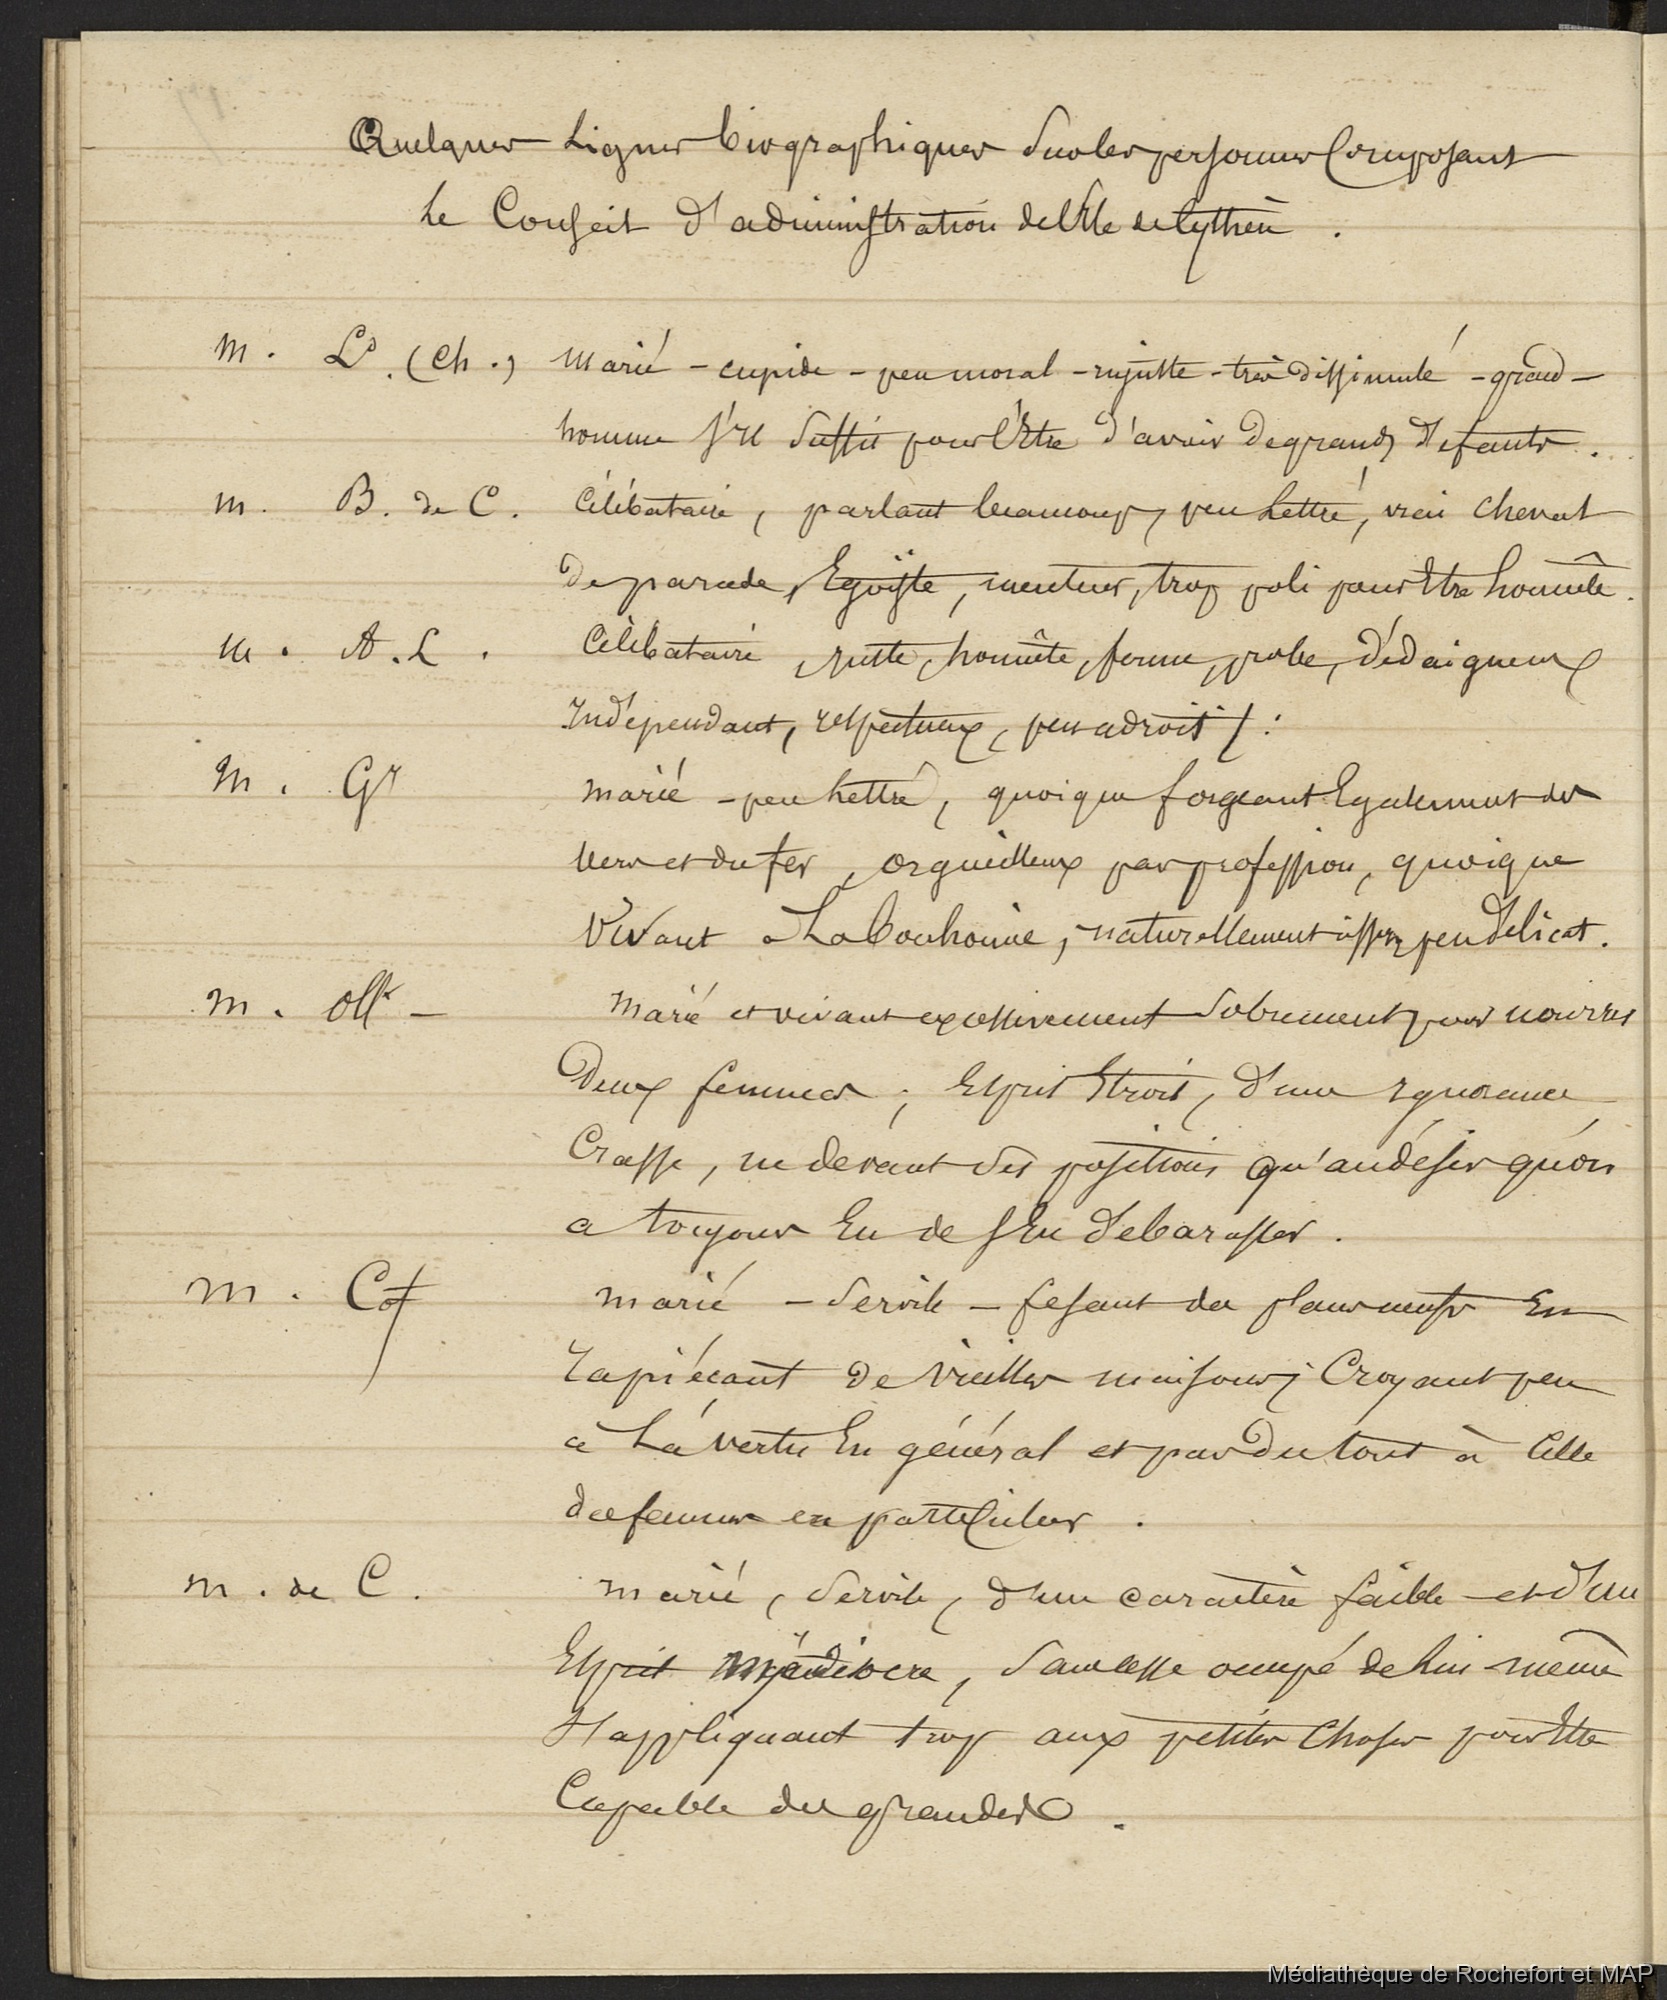 Quelques Lignes biographiques sur les personnes Composant
Le Conseil d'administration de l'Ile de Cythère .
M . Ld . (Ch .) Marié - cupide - peu moral - injuste - très dissimulé - grand -
homme s'il suffit pour l'Etre d'avoir de grands défauts .
M . B. de C . Célibataire , parlant beaucoup , peu Lettré , vrai cheval
de parade , Egoïste , menteur , trop poli pour Etre honnête .
M . A . L . Célibataire , juste , honnête , ferme , probe , dédaigneux
Indépendant , respectueux , peu adroit / :
M . Gr marié - peu Lettré , quoique forgeant Egalement des
vers et du fer , orgueilleux par profession , quoique
Vivant à La bonhomie , naturellement assez peu délicat .
M . Ollr - Marié et vivant excessivement sobrement pour nourrir
Deux femmes ; Esprit Etroit , d'une Ignorance
Crasse , ne devant ses positions qu'au désir qu'on
a toujours Eu de s'En débarasser .
M . Cot marié - servile - fesant des plans neufs En
rapiécant de vieilles maisons ; Croyant peu
à La vertu En général et pas du tout à Celle
des femmes en particulier .
M . de C . marié , servile , d'un caractère faible - et d'un
Esprit médiocre , sans cesse occupé de Lui-même
S'appliquant trop aux petites Choses pour Etre
Capable des grandes .
Médiathèque de Rochefort et MAP